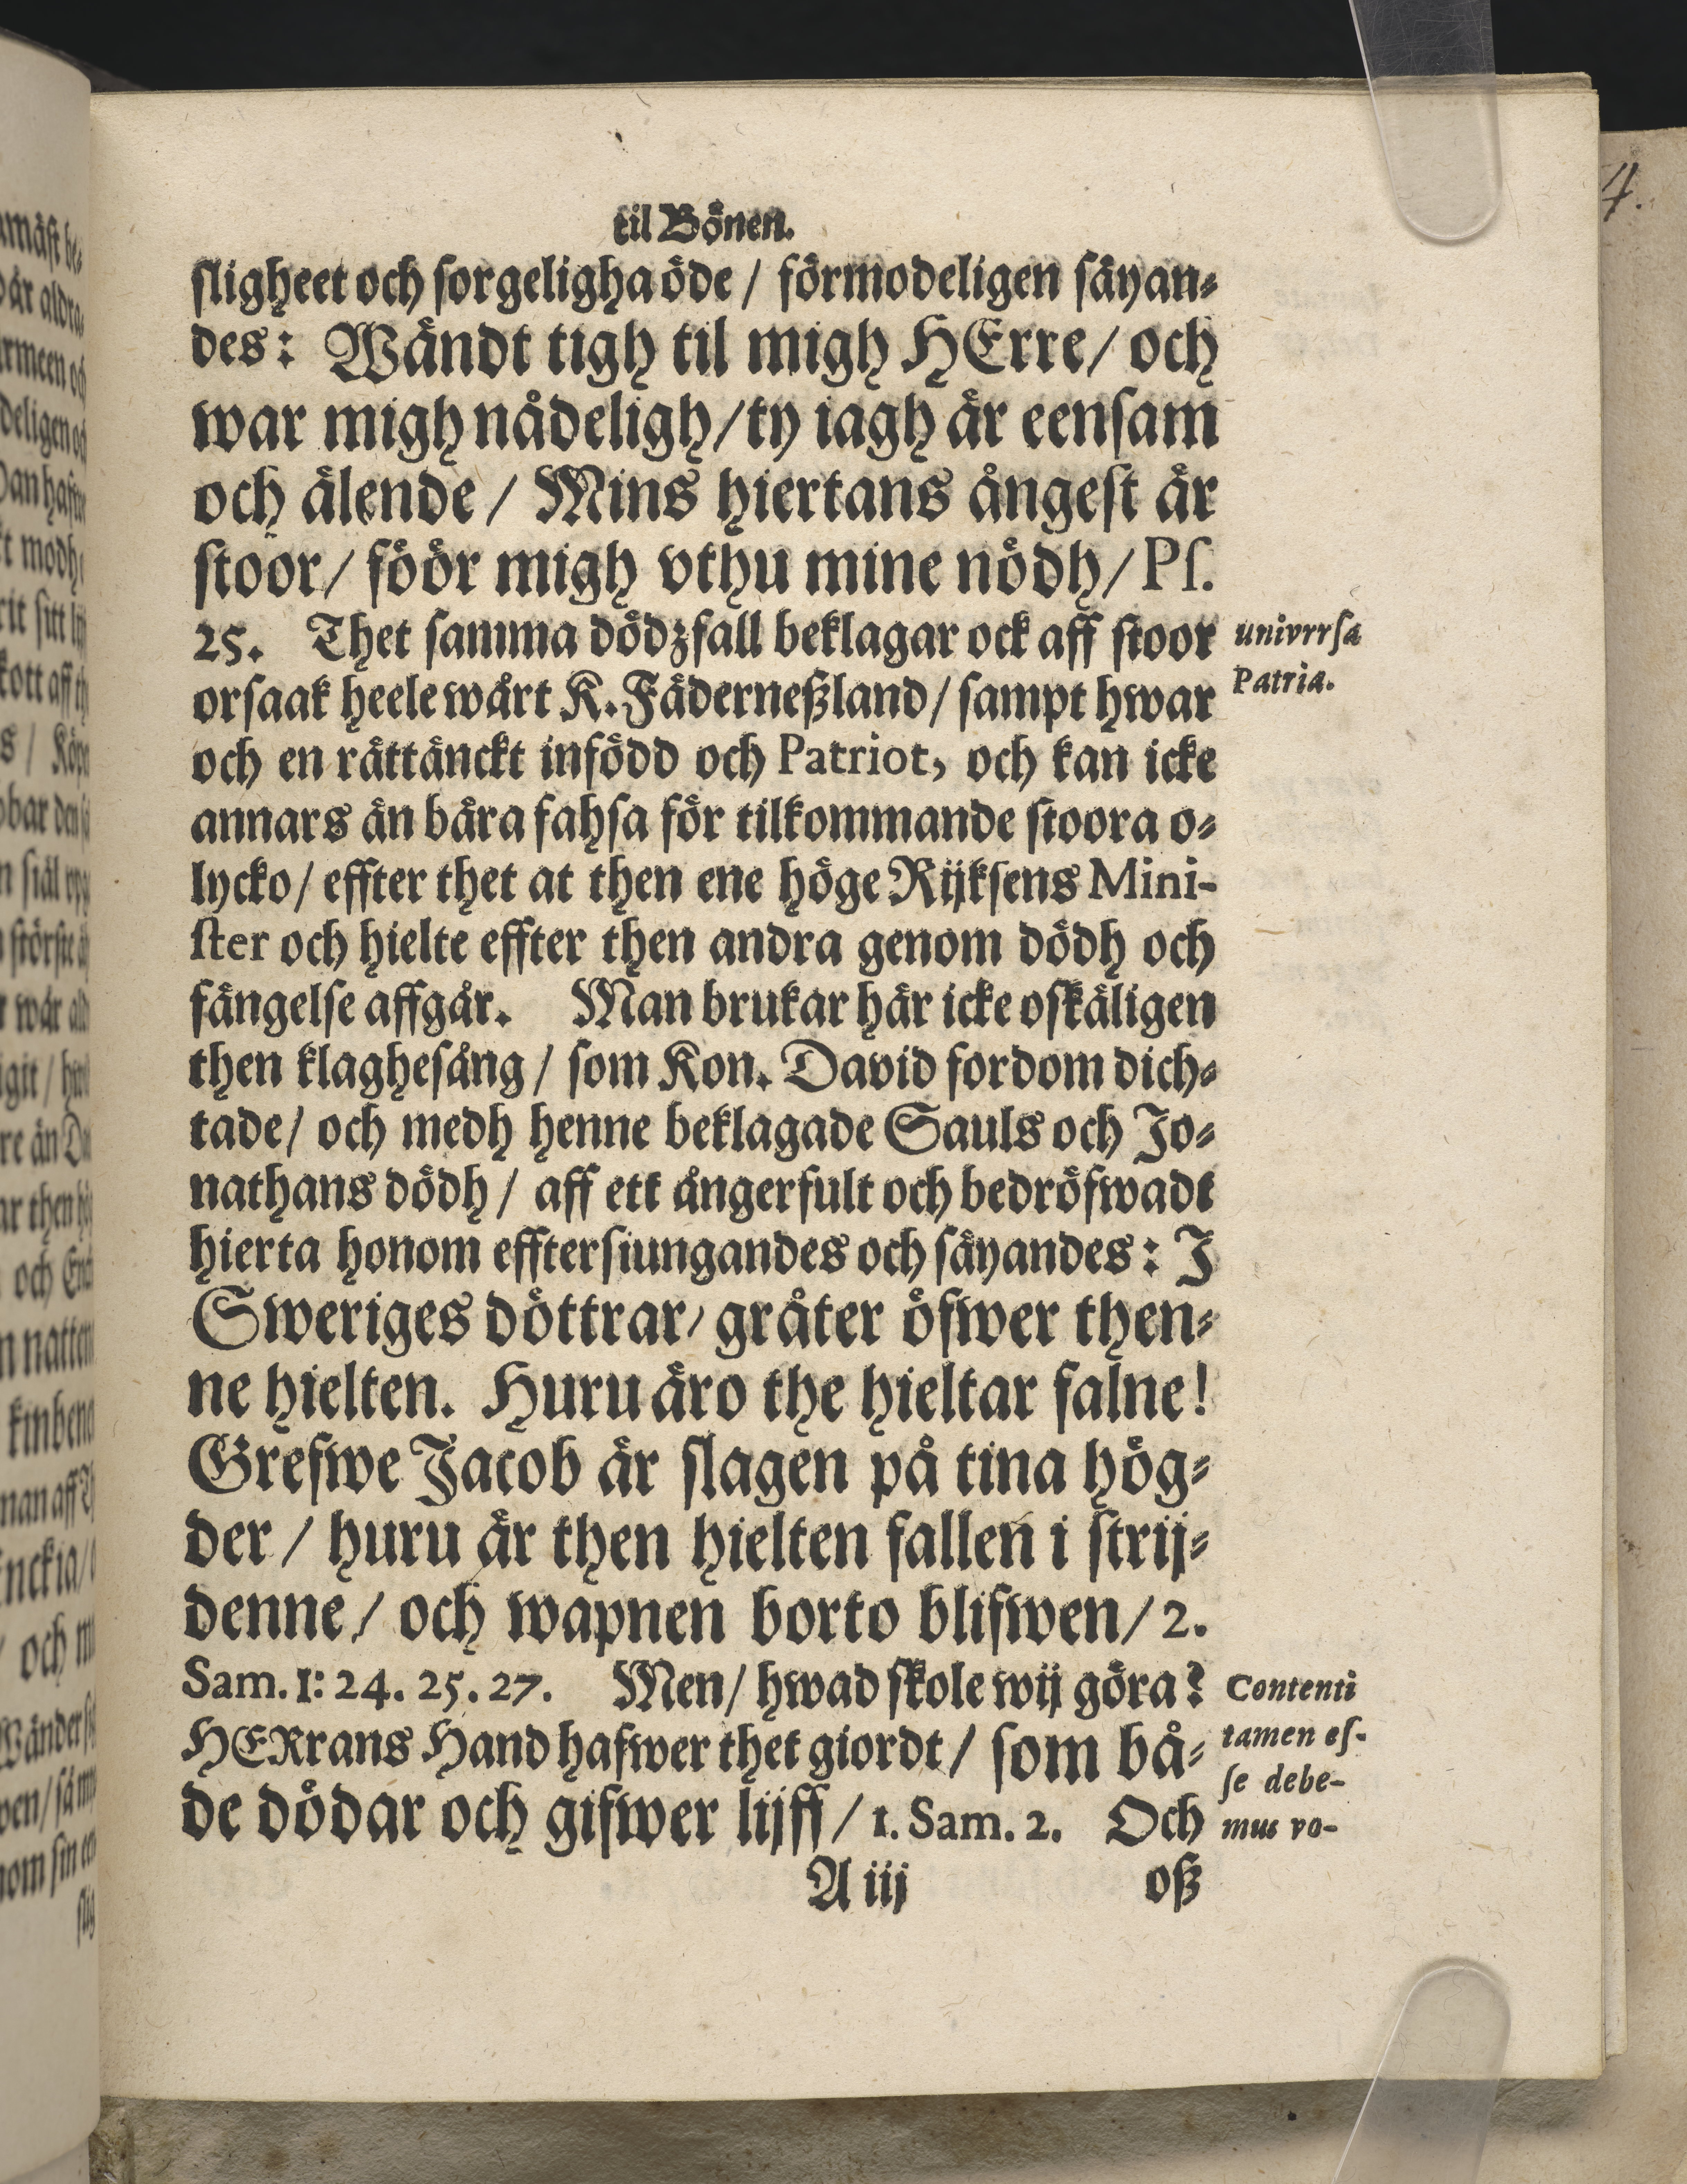 til Bönen.
ſligheet och ſorgeligha öde / förmodeligen ſäyan⸗
des: Wändt tigh til migh HErre/ och
war migh nådeligh/ty iagh är eenſam
och älende / Mins hiertans ångeſt är
ſtoor/ föör migh vthu mine nödh/ Pſ.
25. Thet ſamma dödzfall beklagar ock aff ſtoor
univrrſa
orſaak heele wårt K. Fäderneßland/ ſampt hwar
Patria.
och en rättänckt infödd och Patriot, och kan icke
annars än bära fahſa för tilkommande ſtoora o⸗
lycko/ effter thet at then ene höge Rijkſens Mini-
ſter och hielte effter then andra genom dödh och
fängelſe affgår. Man brukar här icke oſkäligen
then klagheſång / ſom Kon. David fordom dich⸗
tade/ och medh henne beklagade Sauls och Jo⸗
nathans dödh / aff ett ångerfult och bedröfwadt
hierta honom effterſiungandes och ſäyandes: J
Sweriges döttrar/ gråter öfwer then⸗
ne hielten. Huru äro the hieltar falne!
Grefwe Jacob är ſlagen på tina hög⸗
der / huru är then hielten fallen i ſtrij⸗
denne / och wapnen borto blifwen/ 2.
Sam. 1: 24. 25. 27. Men/ hwad ſkole wij göra?
Contenti
HERrans Hand hafwer thet giordt / ſom bå⸗
tamen eſ-
ſe debe-
de dödar och gifwer lijff / 1. Sam. 2. Och
mus vo-
A iij
oß
4.